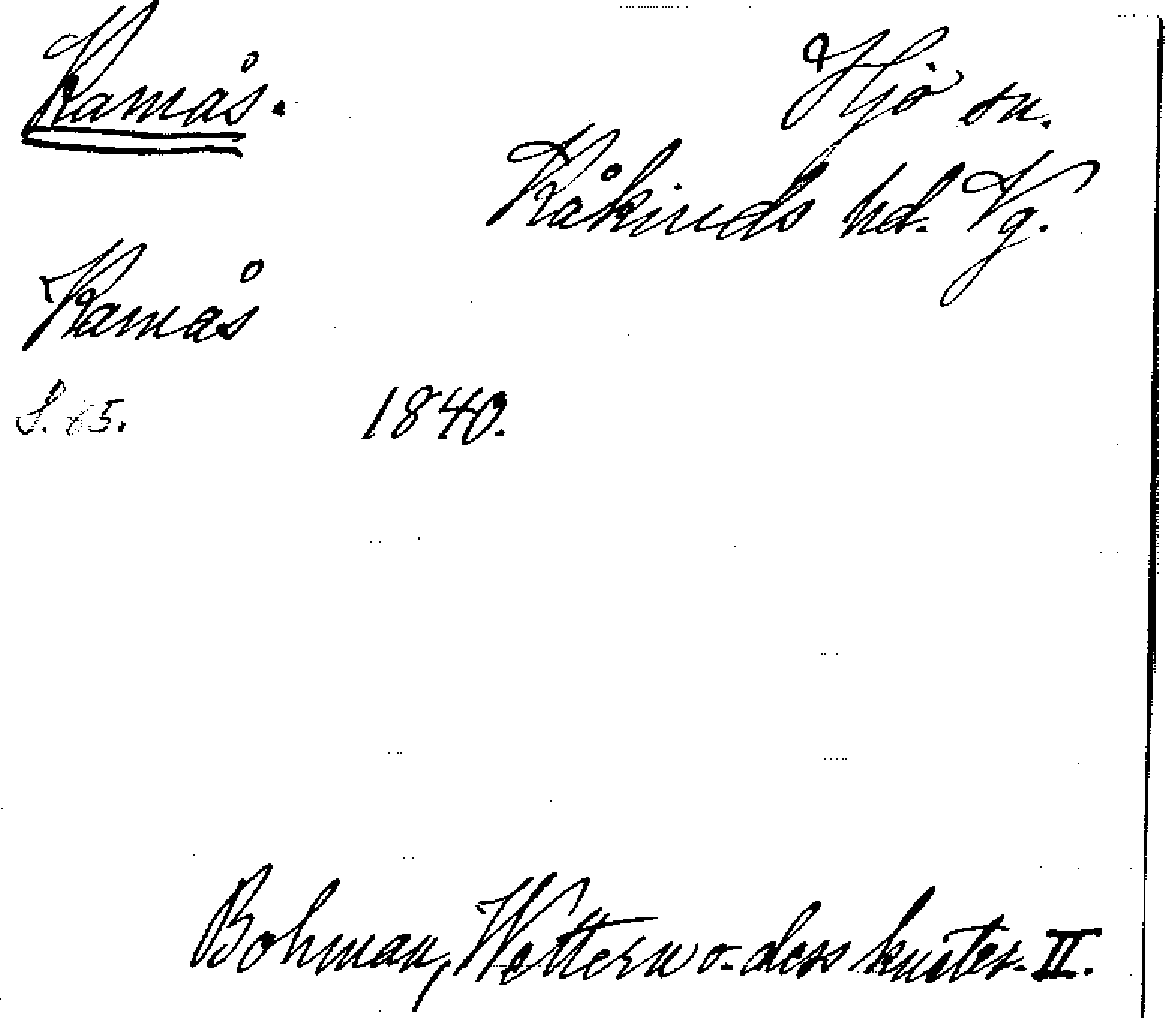 Kamås.
Hjo sn.
Kåkinds hd. Vg.
Kamås
S. 85. 1840.
Bohman, Wettern o. dess kuster. II.